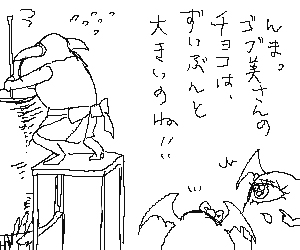 んまっ
ゴブ美さんの
チョコは、
ずいぶんと
大きいのね!!